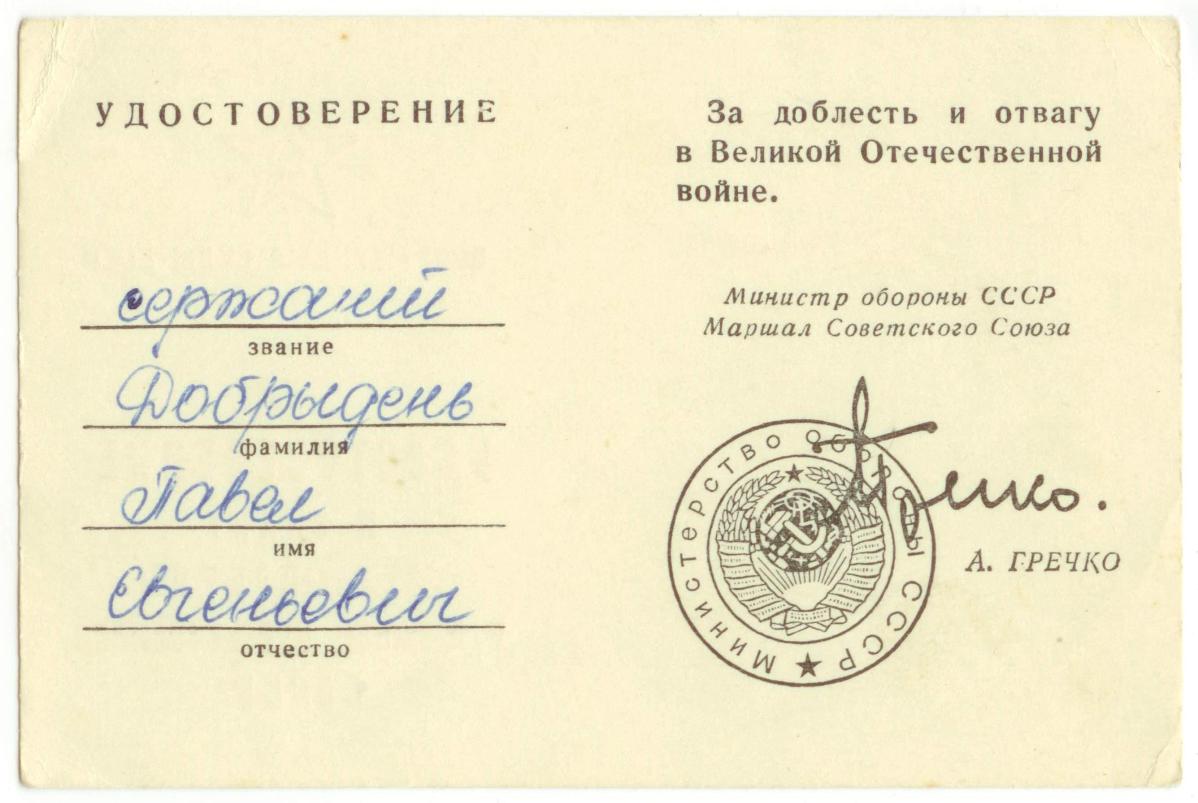 УДОСТОВЕРЕНИЕ
сержант
звание
Добрыдень
фамилия
Павел
имя
Евгеньевич
отчество
За доблесть и отвагу
в Великой Отечественной
войне.
Министр обороны СССР
Маршал Советского Союза
Гречко.
А. ГРЕЧКО
Министерство Обороны СССР